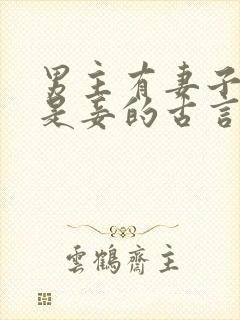 男主有妻子
是妾的古言
雲鶴齋主